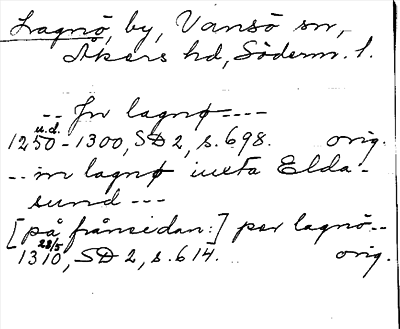 Lagnö, by, Vansö sn,
Åkers hd, Söderm. l.
-- Jn lagnø ---
u.d.
1250-1300, SD 2, s. 698. orig.
-- in lagnø iuxta Elda-
sund ---
[på frånsidan:] per lagnö--
28/5
1310, SD 2, s. 614. orig.